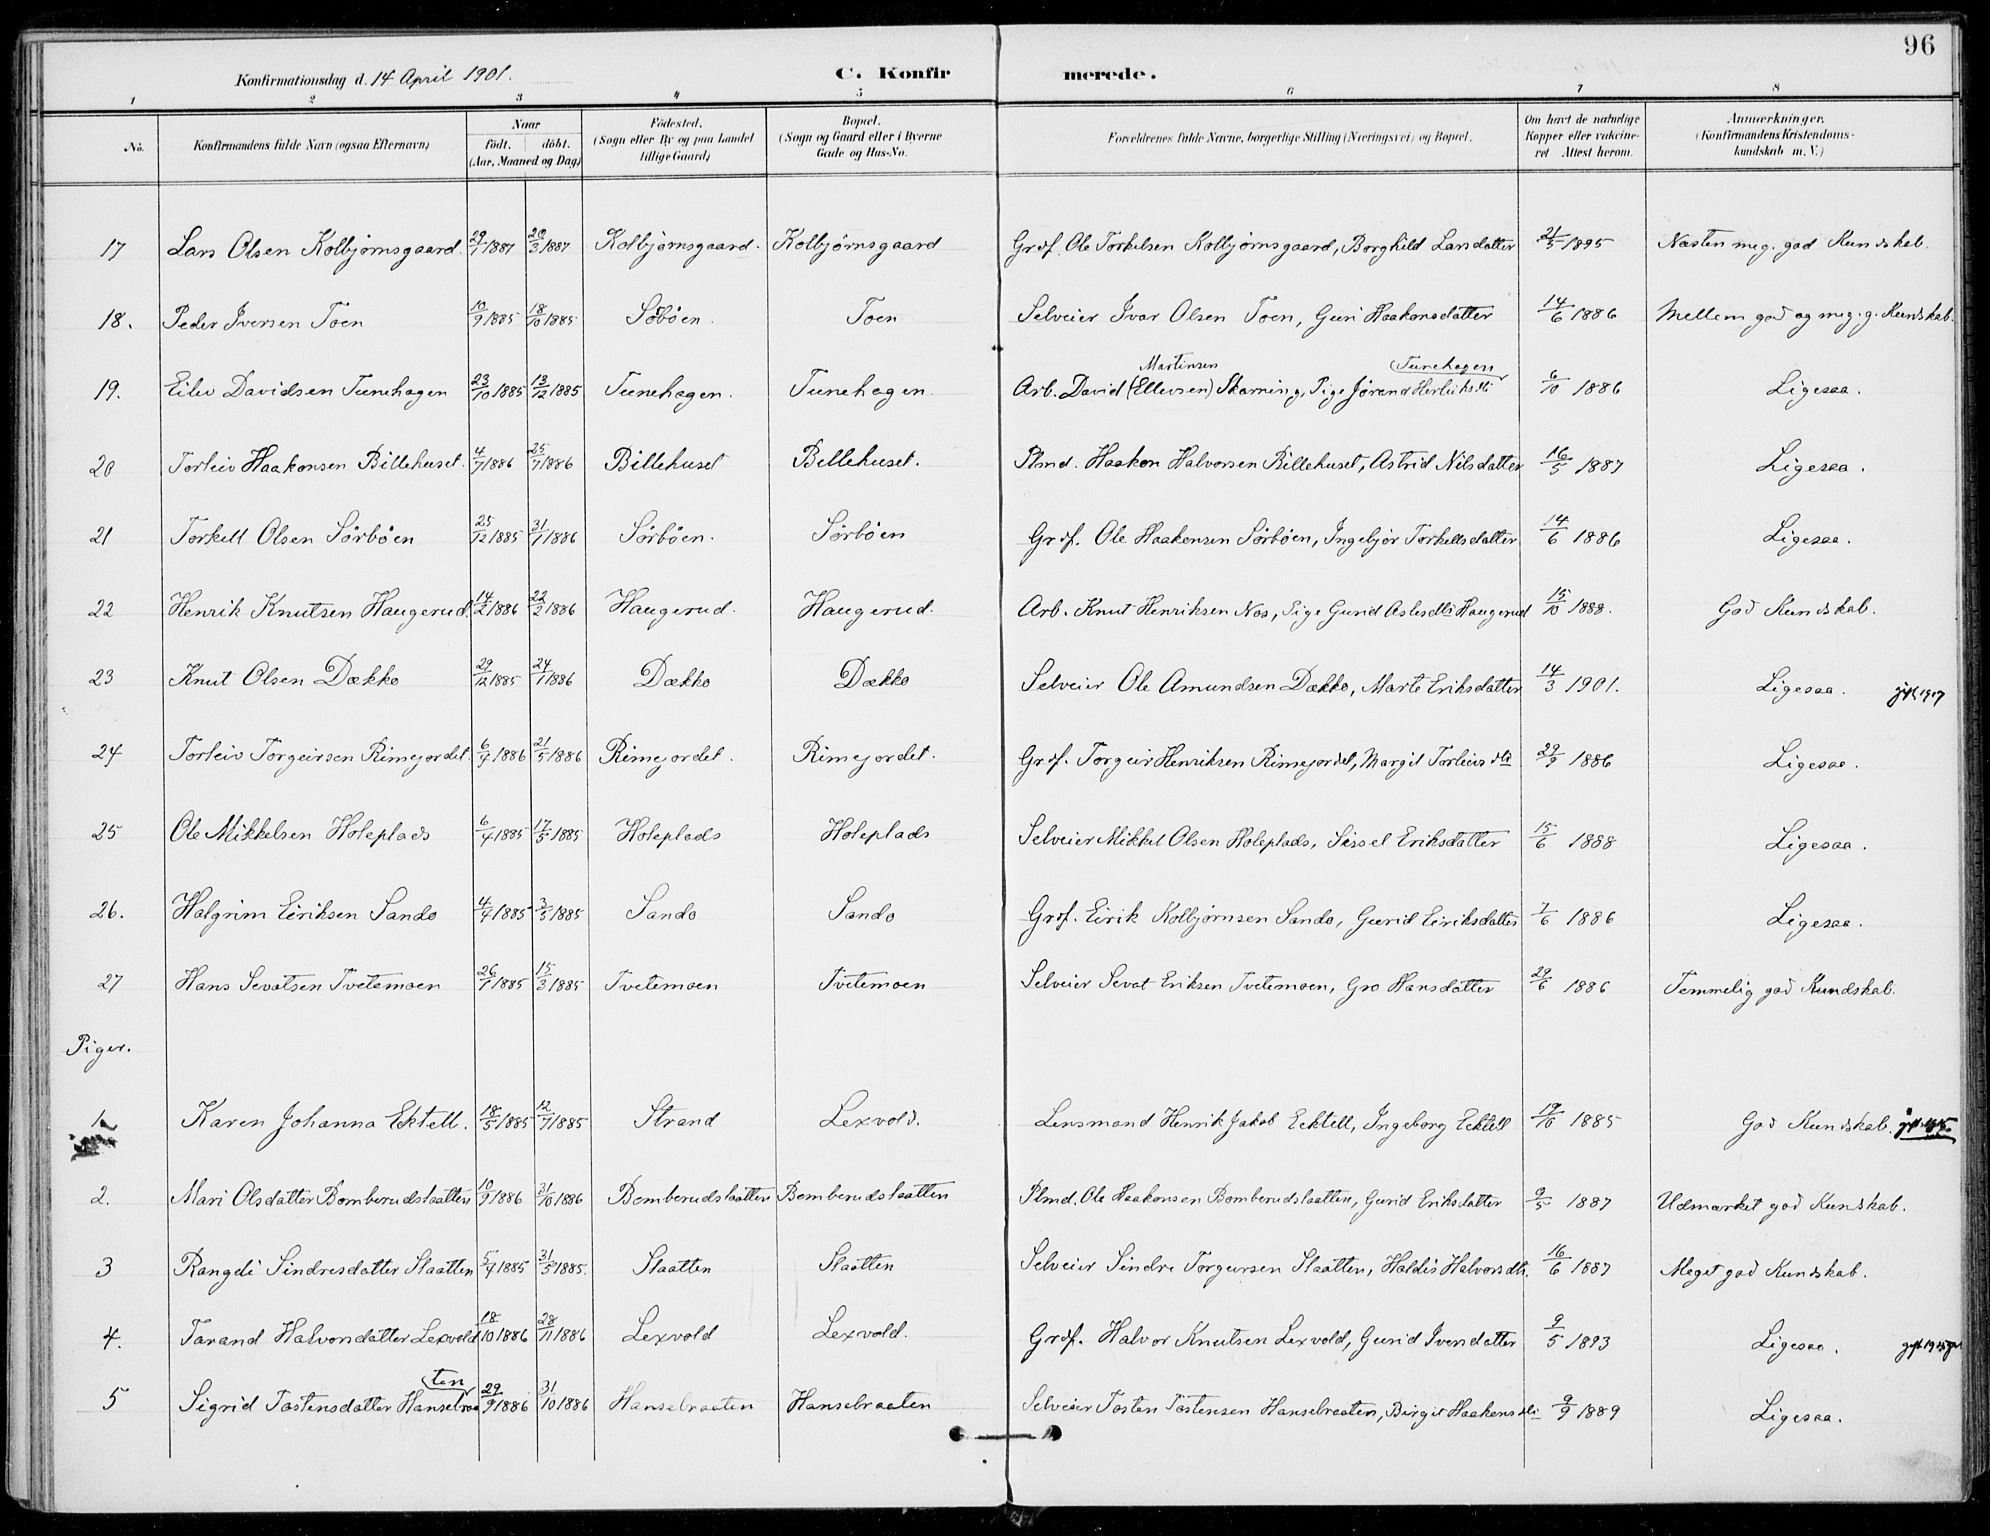 96
Konfirmationsdag d. 14 April 1901.
C. Konfirmerede.
1 2 3 4 5 6 7 8
No.
Konfirmandens fulde Navn (ogsaa Efternavn)
Naar
født. døbt.
(Aar, Maaned og Dag)
Fødested.
(Sogn eller By og paa Landet
tillige Gaard)
Bopæl.
(Sogn og Gaard eller i Byerne
Gade og Hus-No.
Forældrenes fulde Navne, borgerlige Stilling (Næringsvei) og Bopæl.
Om havt de naturlige
Kopper eller vakcine-
ret Attest herom.
Anmærkninger.
(Konfirmandens Kristendoms-
kundskab m. V.)
17 Lars Olsen Kolbjørnsgaard. 29/1 1887 20/3 1887 Kolbjørnsgaard. Kolbjørnsgaard Grdf. Ole Torkelsen Kolbjørnsgaard, Borghild Larsdatter 21/5 1895 Næsten meg. god Kundskab.
18. Peder Iversen Toen 10/9 1885 18/10 1885 Søbøen. Toen Selveier Ivar Olsen Toen, Guri Haakonsdatter 14/6 1886 Mellem god og meg. g. Kundskab.
Martinsen Tunehagen
19. Eilev Davidsen Tunehagen 23/10 1885 13/12 1885 Tunehagen. Tunehagen. Arb. David (Ellevsen) Skarning, Pige Jørand 6/10 1886 Ligesaa.
20 Torleiv Haakonsen Billehuset. 4/7 1886 25/7 1886 Billehuset Billehuset. Plmd. Haakon Halvorsen Billehuset, Astrid Nilsdatter 16/5 1887 Ligesaa.
21 Torkell Olsen Sørbøen 25/12 1885 31/1 1886 Sørbøen. Sørbøen Grdf. Ole Haakensen Sørbøen, Ingebjør Torkellsdatter 14/6 1886 Ligesaa.
22 Henrik Knutsen Haugerud. 14/2 1886 22/2 1886 Haugerud. Haugerud. Arb. Knut Henriksen Nos, Pige Gurid Aslesdtr Haugerud 15/10 1888. God Kundskab.
23 Knut Olsen Dækko 29/12 1885 24/1 1886 Dækko Dækko Selveier Ole Amundsen Dækko, Marte Eriksdatter 14/3 1901. Ligesaa. gift 1917
24 Torleiv Torgeirsen Rimejordet. 6/4 1886 21/5 1886 Rimejordet. Rimejordet. Grdf. Torgeir Henriksen Rimejordet, Margit Torleivsdtr 29/9 1886 Ligesaa.
25 Ole Mikkelsen Holeplads 6/4 1885 17/5 1885 Holeplads Holeplads Selveier Mikkel Olsen Holeplads, Sissel Eriksdatter 15/6 1888 Ligesaa.
26. Halgrim Eiriksen Sando 4/4 1885 3/5 1885 Sando Sando Grdf. Eirik Kolbjørnsen Sando, Gurid Eiriksdatter 7/6 1886 Ligesaa.
27 Hans Sevatsen Tvetemoen 26/1 1885 15/3 1885 Tvetemoen Tvetemoen Selveier Sevat Eriksen Tvetemoen, Gro Hansdatter 29/6 1886 Temmelig god Kundskab.
Piger.
1. Karen Johanna Ektell. 18/5 1885 12/7 1885 Strand Lexvold. Lensmand Henrik Jakob Eektell, Ingeborg Ektell 19/10 1885 God Kundskab.
2. Mari Olsdatter Bomberudslaatten 10/9 1886 31/10 1886 Bomberudslaatten Bomberudslaatten Plmd. Ole Haakonsen Bomberudslaatten, Gurid Eriksdatter 9/5 1887 Udmærket god Kundskab.
3 Rangdi Sindresdatter Slaatten 5/4 1885 31/5 1885. Slaatten Slaatten Selveier Sindre Torgeirsen Slaatten, Haldis Halvorsdtr. 16/6 1887 Meget god Kundskab.
4. Tarand Halvorsdatter Lexvold 18/10 1886 28/11 1886 Lexvold Lexvold. Grdf. Halvor Knutsen Lexvold, Gurid Iversdatter 9/5 1893 Ligesaa.
ten
5 Sigrid Tostensdatter Hansebraa 29/9 1886 31/10 1886 Hansebraaten Hansebraaten Selveier Tosten Tostensen Hansebraaten, Birgit Haakensdtr 9/9 1889 Ligesaa.